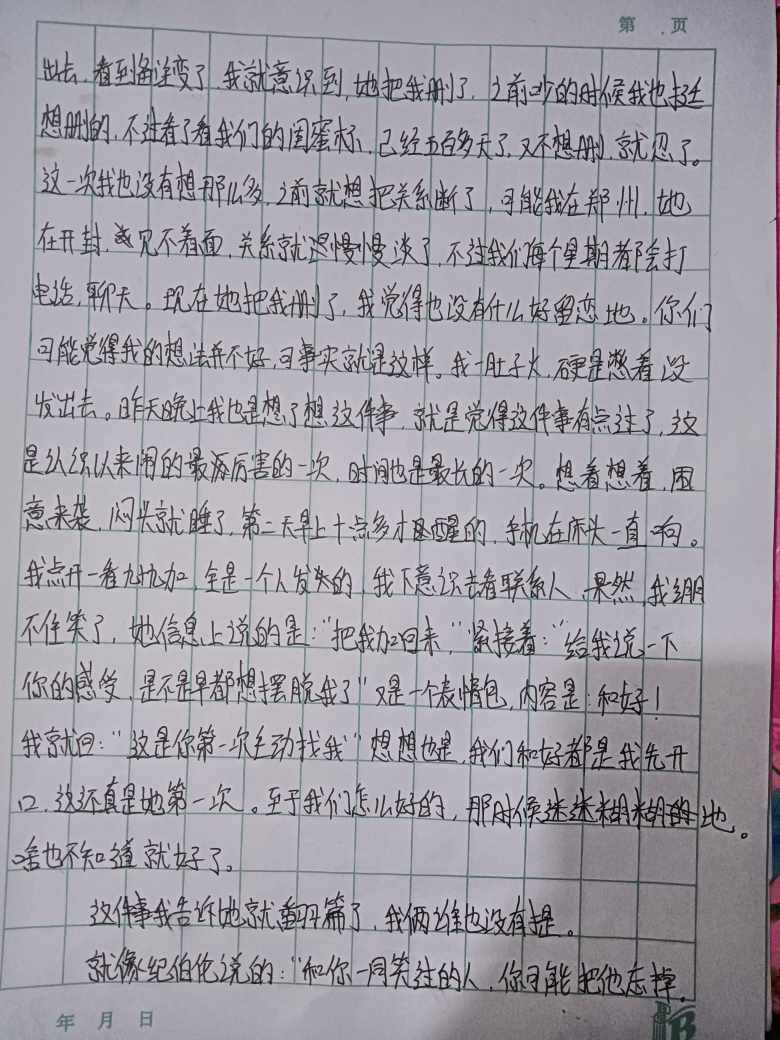 第 页
出去,看到备注变了,我就意识到,她把我删了,之前吵的时候我也
想删的,不过看了看我们的闺蜜标,已经五百多天了,又不想删,就忍了。
这一次我也没有想那么多,之前就想把关系断了,可能我在郑州,她
在开封,见不着面,关系就慢慢淡了,不过我们每个星期都会打
电话,聊天。现在她把我删了,我觉得也没有什么好留恋地。你们
可能觉得我的想法并不好,可事实就是这样。我一肚子火,硬是憋着没
发出去。昨天晚上我也是想了想这件事,就是觉得这件事有点过了,这
是认识以来闹的最厉害的一次,时间也是最长的一次。想着想着,困
意来袭,闷头就睡了,第二天早上十点多才醒的,手机在床头一直响。
我点开一看九九加,全是一个人发来的,我下意识去看联系人,果然,我绷
不住笑了,她信息上说的是:"把我加回来,"紧接着:"给我说一下
你的感受,是不是早都想摆脱我了"又是一个表情包,内容是:和好!
我就回:"这是你第一次主动找我"想想也是,我们和好都是我先开
口,这还真是她第一次。至于我们怎么好的,那时候迷迷糊糊地。
啥也不知道就好了。
这件事我告诉她就翻篇了,我俩谁也没有提。
就像纪伯伦说的:"和你一同笑过的人,你可能把他忘掉,
年 月 日